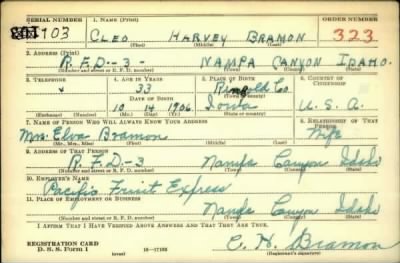 SERIAL NUMBER 1. NAME (Print) ORDER NUMBER
1103 CLEO HARVEY BRAMON 323
(First) (Middle) (Last)
2. ADDRESS (Print)
R.F.D.-3- NAMPA CANYON IDAHO.
(Number and street or R. F. D. number) (Town) (County) (State)
3. TELEPHONE 4. AGE IN YEARS 5. PLACE OF BIRTH 6. COUNTRY OF CITIZENSHIP
x 33 Ringold Co.
(Town) (County)
DATE OF BIRTH
10 14 1906 Iowa U.S.A.
(Exchange) (Number) (Mo.) (Day) (Yr.) (State or country)
7. NAME OF PERSON WHO WILL ALWAYS KNOW YOUR ADDRESS 8. RELATIONSHIP OF THAT PERSON
Mrs. Elva Bramon Wife
(Mr., Mrs., Miss) (First) (Middle) (Last)
9. ADDRESS OF THAT PERSON
R.F.D.-3 Nampa Canyon Idaho
(Number and street or R. F. D. number) (Town) (County) (State)
10. EMPLOYER'S NAME
Pacific Fruit Express
11. PLACE OF EMPLOYMENT OR BUSINESS
Nampa Canyon Idaho
(Number and street or R. F. D. number) (Town) (County) (State)
I AFFIRM THAT I HAVE VERIFIED ABOVE ANSWERS AND THAT THEY ARE TRUE.
REGISTRATION CARD
D. S. S. Form 1 (over) 16-17105 C. H. Bramon
(Registrant's signature)